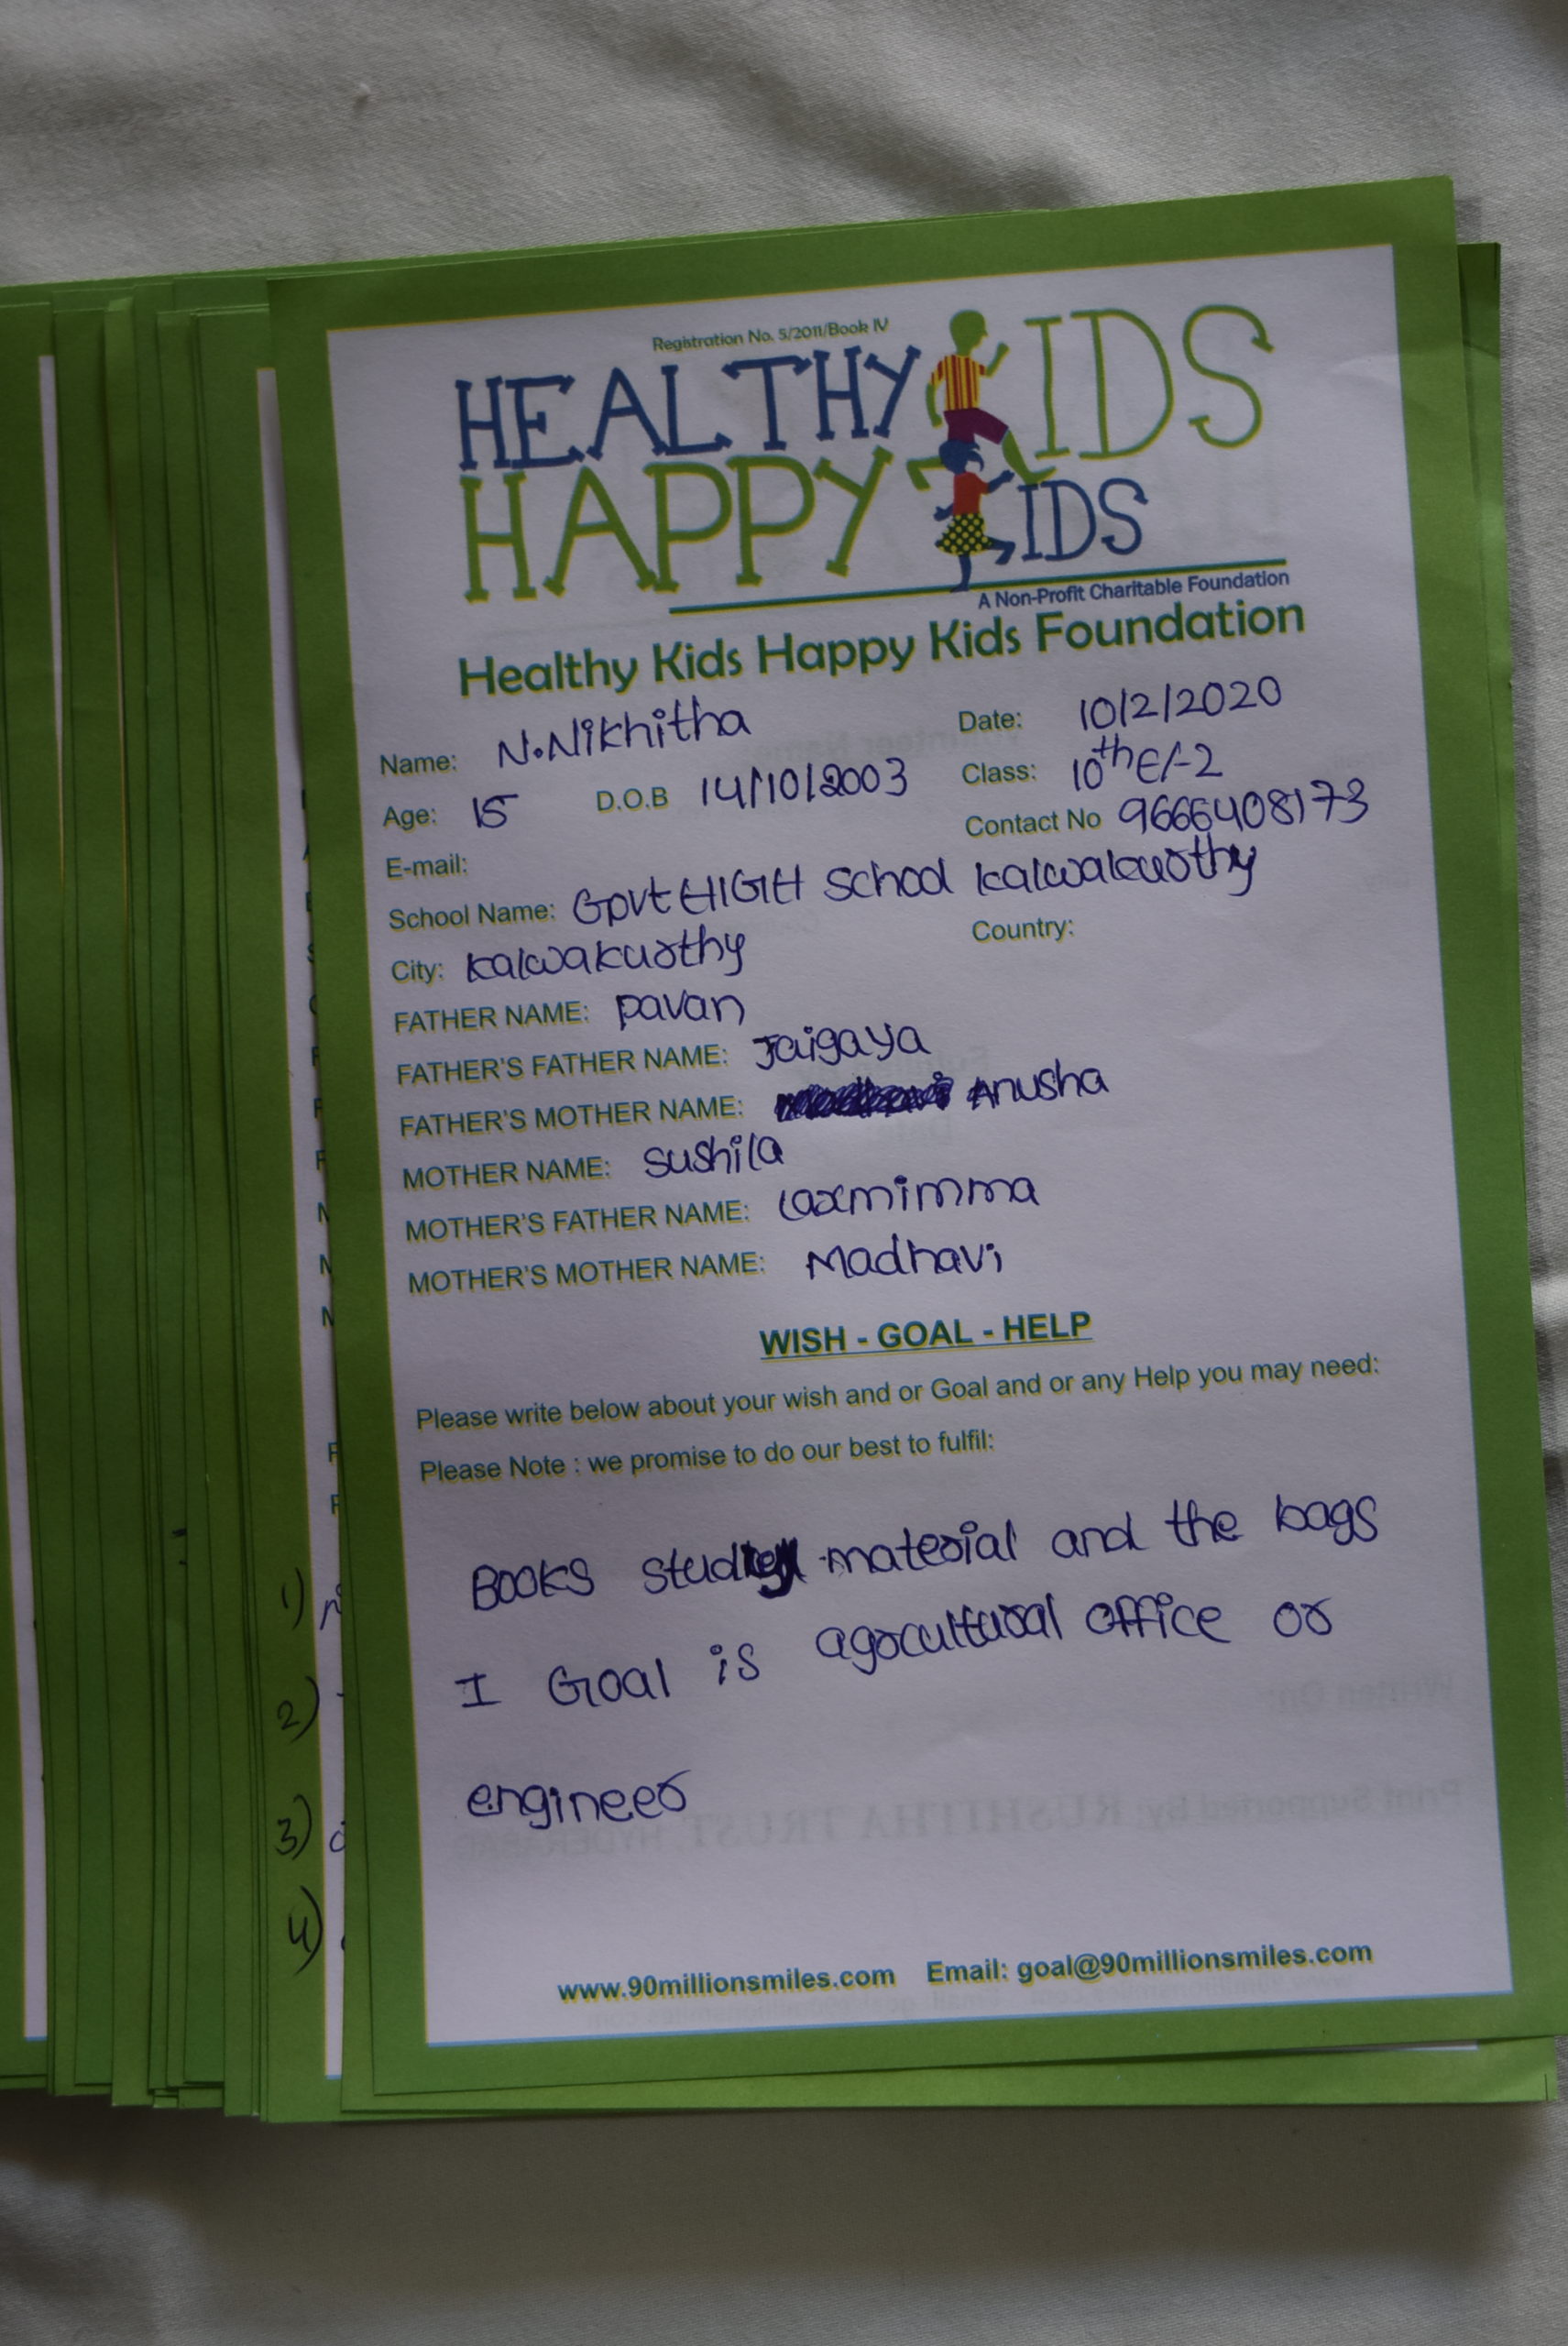 Registration No. 5/2011/Book IV
HEALTHY KIDS
HAPPY KIDS
A Non-Profit Charitable Foundation
Healthy Kids Happy Kids Foundation
Name: N.Nikhitha Date: 10/2/2020
Age: 15 D.O.B 14/10/2003 Class: 10th E/-2
E-mail: Contact No 9666408173
School Name: Govt HIGH School kalwakurthy
City: kalwakurthy Country:
FATHER NAME: pavan
FATHER'S FATHER NAME: Jaigaya
FATHER'S MOTHER NAME: Anusha
MOTHER NAME: sushila
MOTHER'S FATHER NAME: laxmimma
MOTHER'S MOTHER NAME: Madhavi
WISH - GOAL - HELP
Please write below about your wish and or Goal and or any Help you may need:
Please Note : we promise to do our best to fulfil:
BOOKS study material and the bags
I Goal is agrocultural office or
engineer
www.90millionsmiles.com Email: goal@90millionsmiles.com
1)
2)
3)
4)